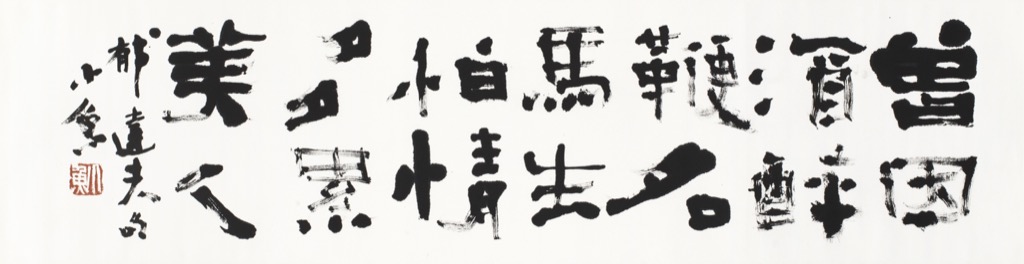 曾因
酒醉
鞭名
馬生
怕情
多累
美人
郁達夫句
小魚